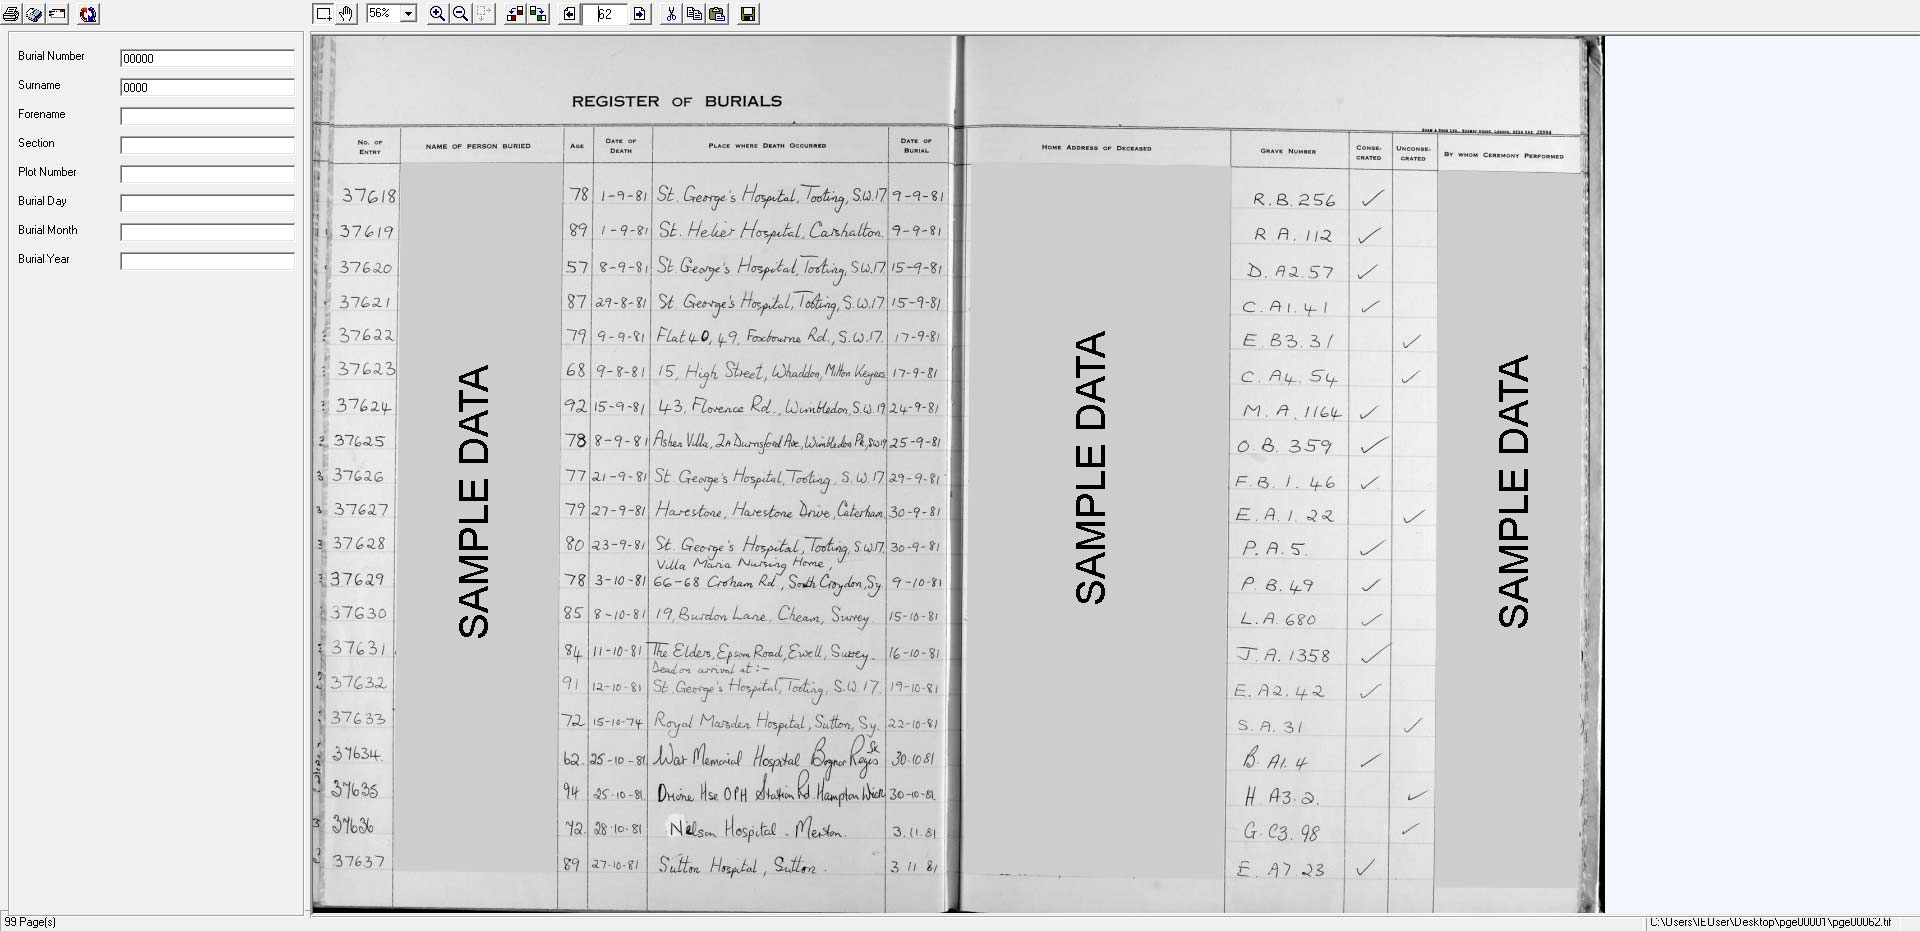 56%
62
Burial Number 00000
Surname 0000
Forename
Section
Plot Number
Burial Day
Burial Month
Burial Year
REGISTER OF BURIALS
No. of Entry NAME OF PERSON BURIED Age Date of Death Place where Death Occurred Date of Burial Home Address of Deceased Grave Number Conse-crated Unconse-crated By whom Ceremony Performed
37618 78 1-9-81 St. George's Hospital, Tooting, S.W.17 9-9-81 R.B.256 ✓
37619 89 1-9-81 St. Helier Hospital, Carshalton. 9-9-81 R A. 112 ✓
37620 57 8-9-81 St. George's Hospital, Tooting, S.W.17 15-9-81 D. A2.57 ✓
37621 87 29-8-81 St. George's Hospital, Tooting, S.W.17. 15-9-81 C. A1. 41 ✓
37622 79 9-9-81 Flat 40, 49, Foxbourne Rd., S.W.17. 17-9-81 E. B3. 31 ✓
37623 68 9-8-81 15, High Street, Whaddon, Milton Keynes 17-9-81 C. A4. 54 ✓
37624 92 15-9-81 43, Florence Rd., Wimbledon, S.W.19 24-9-81 M. A. 1164 ✓
37625 78 8-9-81 Ashen Villa, 2A Durnsford Ave, Wimbledon Pk, SW19 25-9-81 O.B. 359 ✓
37626 77 21-9-81 St. George's Hospital, Tooting, S.W.17 29-9-81 F.B. 1. 46 ✓
37627 79 27-9-81 Harestone, Harestone Drive, Caterham. 30-9-81 E. A. 1. 22 ✓
37628 80 23-9-81 St. George's Hospital, Tooting, S.W.17. 30-9-81 P. A. 5. ✓
Villa Maria Nursing Home,
37629 78 3-10-81 66-68 Croham Rd., South Croydon, Sy. 9-10-81 P. B. 49 ✓
37630 85 8-10-81 19, Burdon Lane, Cheam, Surrey 15-10-81 L. A. 680 ✓
37631 84 11-10-81 The Elders, Epsom Road, Ewell, Surrey. 16-10-81 J. A. 1358 ✓
Dead on arrival at:-
37632 91 12-10-81 St. George's Hospital, Tooting, S.W.17. 19-10-81 E. A2. 42 ✓
37633 72 15-10-74 Royal Marsden Hospital, Sutton, Sy. 22-10-81 S. A. 31 ✓
37634. 62. 25-10-81 War Memorial Hospital Bognor Regis Sx 30.10 81 B. A1. 4 ✓
37635 94 25.10.81. Hse OPH Station Rd. Hampton Wick 30-10-81. H A3.2. ✓
37636 72. 28.10.81 Nelson Hospital. Merton. 3.11.81 G. C3. 98 ✓
37637 89 27-10-81 Sutton Hospital, Sutton. 3 11 81 E. A7. 23 ✓
SAMPLE DATA
SAMPLE DATA
SAMPLE DATA
99 Page(s)
C:\Users\IEUser\Desktop\pge00001\pge00062.tif